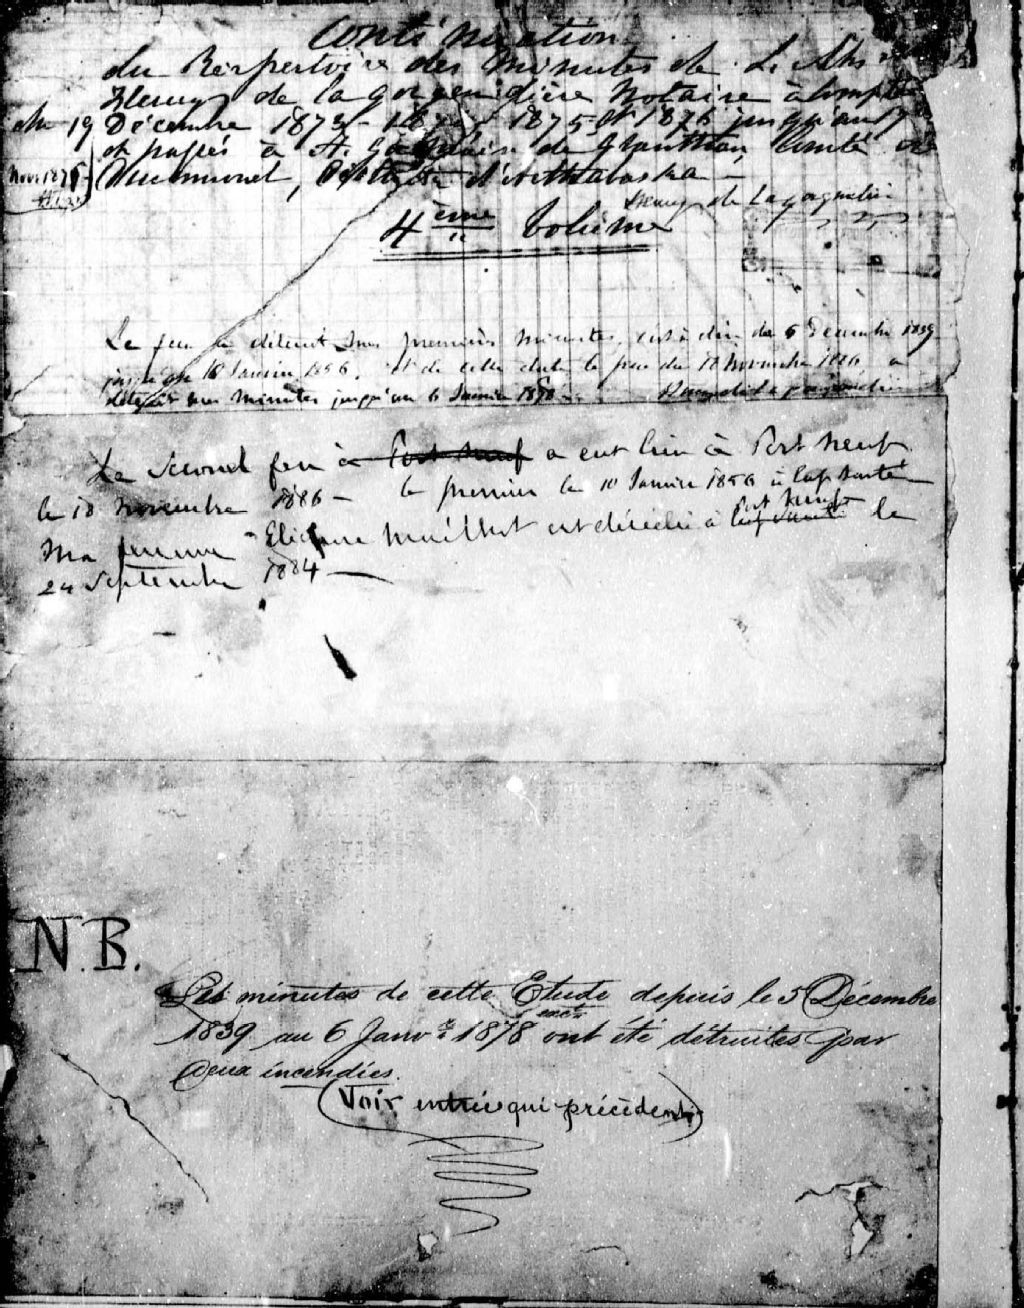 Continuation
du Rerpertoire des minutes de L. Chs
Heney de la gorgendière Notaire à compter
du 19 Décembre 1873 1875 et 1876 jusqu'au 7
et passés à St. de Granthan, Comté de
Nov. 1875
Drummond, District d'Arthabaska
4ème Volume
Le feu a détruit mes premières minutes, c'est à dire du 5 Decembre 1839
jusqu'au 10 Janvier 1856. Et de cette date le feu du 18 Novembre 1886 a
détruit mes minutes jusqu'au 6 Janvier 1878
Le Second feu à Port Neuf a eut lieu à Port Neuf
le 18 Novembre 1886 - le premier le 10 Janvier 1856 à
Port Neuf
Ma femme Mailhot est décédée à le
24 Septembre 1884
N.B.
Les minutes de cette Etude depuis le 5 Décembre
1839 au 6 Janvr 1878 ont été détruites par
deux incendies.
(Voir entrée qui précédent)